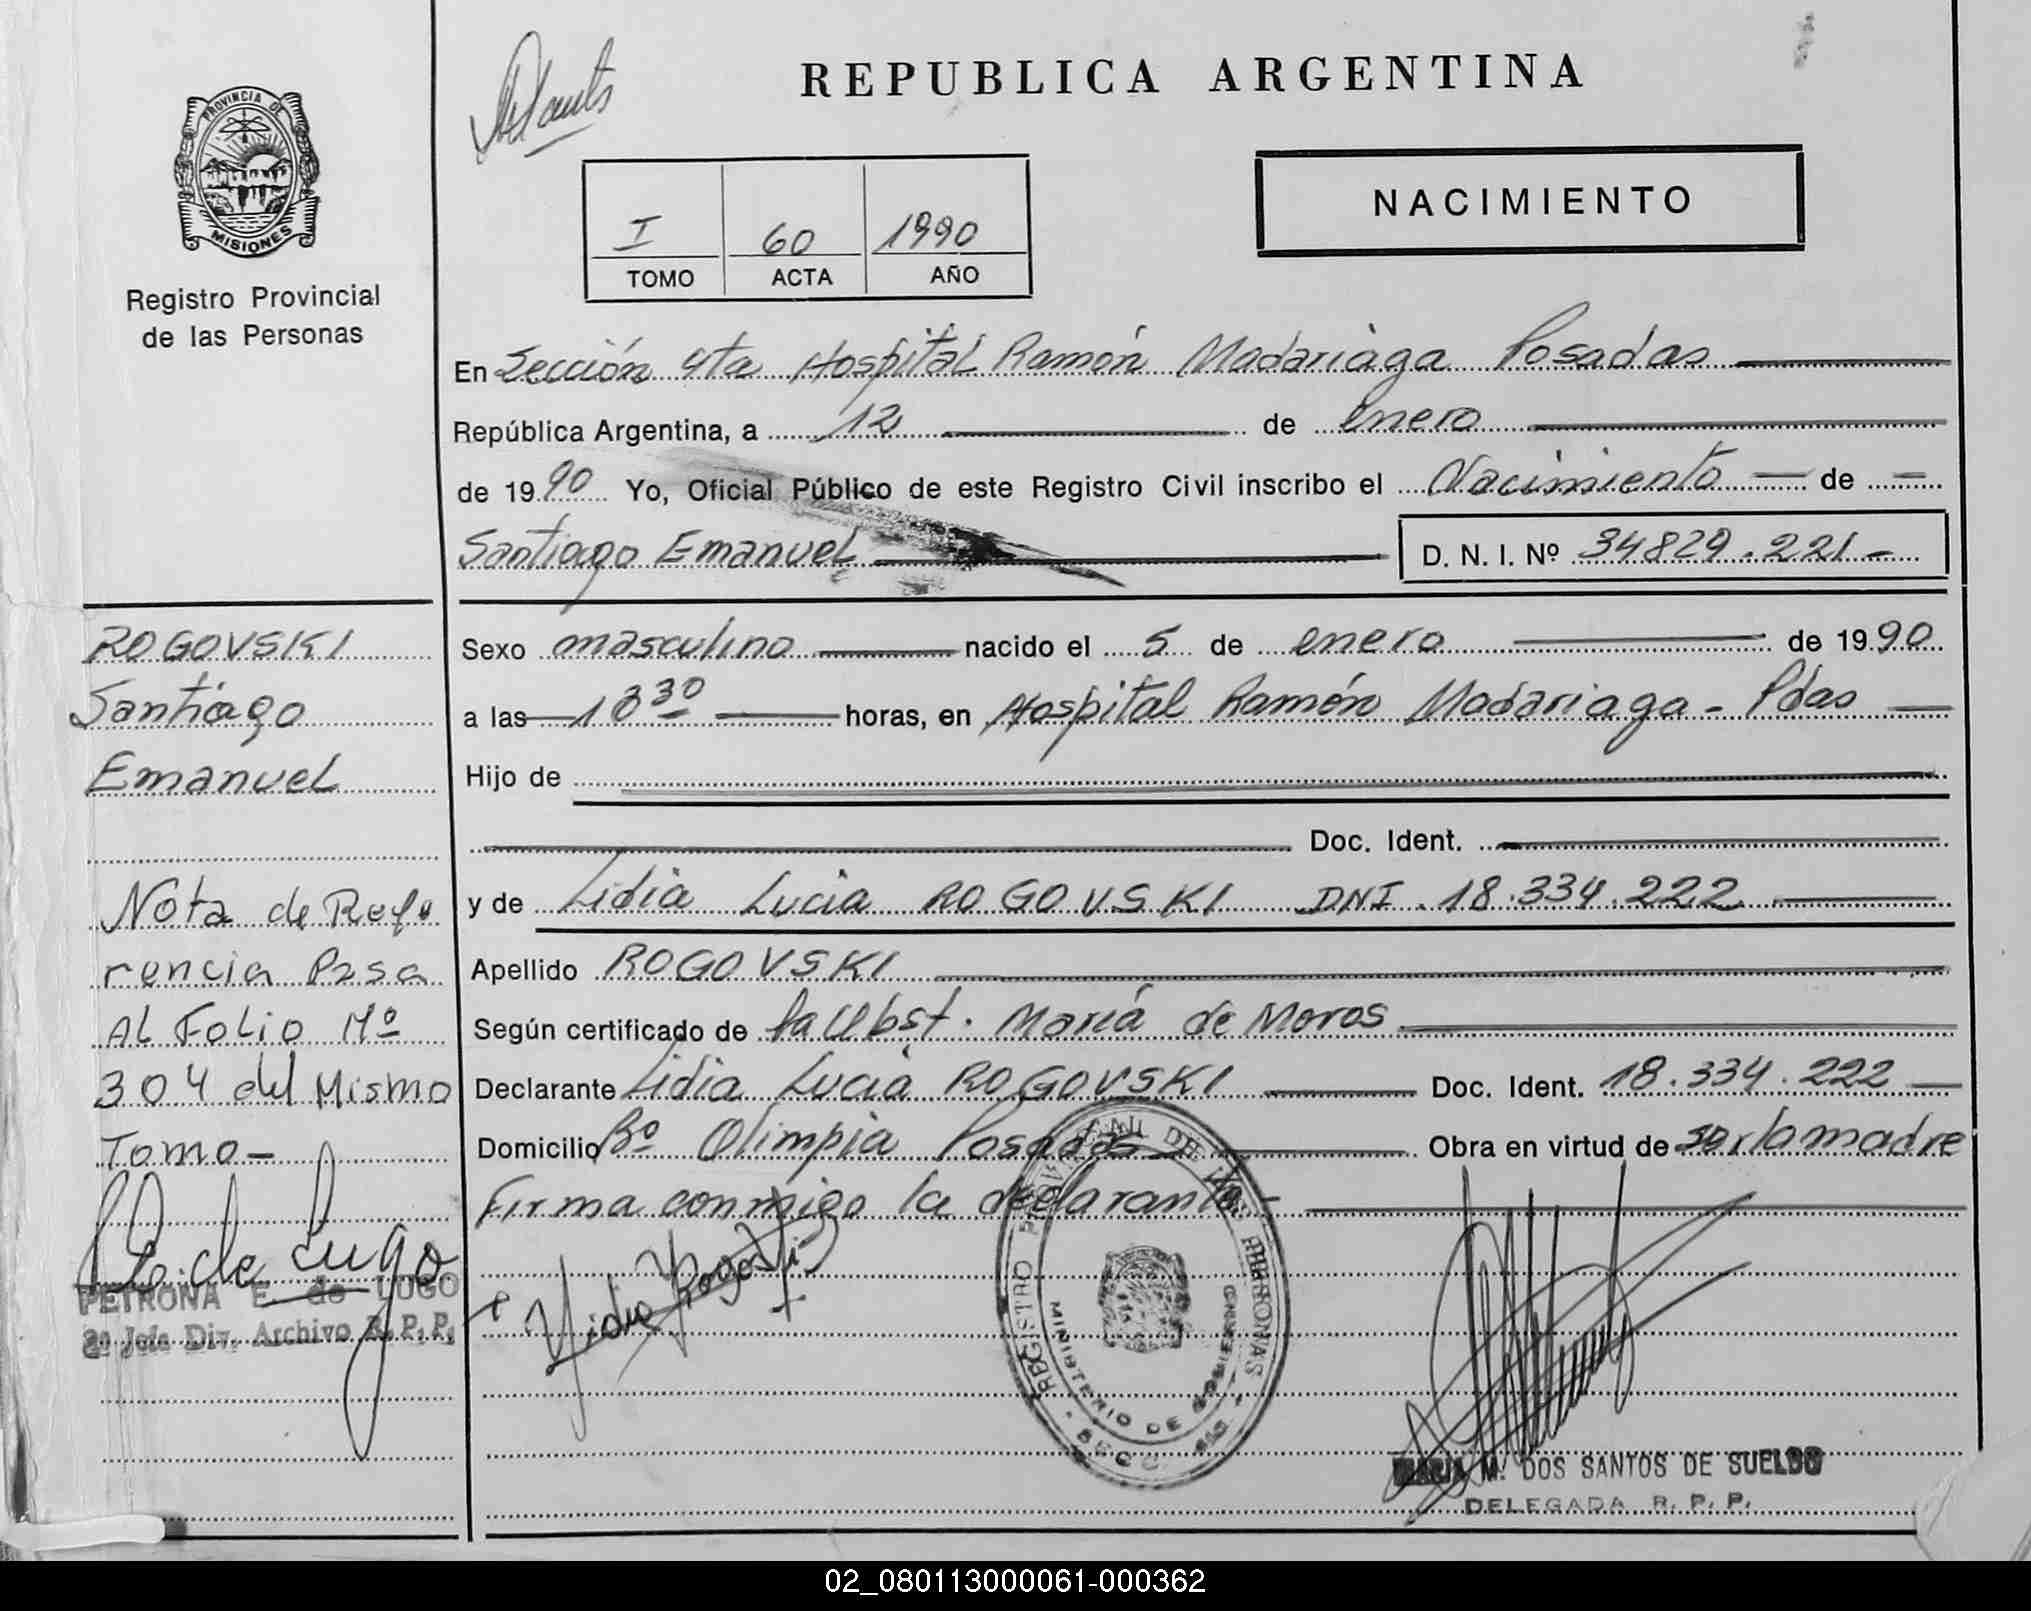 REPUBLICA ARGENTINA
PROVINCIA DE
MISIONES
Registro Provincial
de las Personas
I 60 1990
TOMO ACTA AÑO
NACIMIENTO
En Sección 4ta Hospital Ramón Madariaga Posadas
República Argentina, a 12 de enero
de 1990 Yo, Oficial Público de este Registro Civil inscribo el Nacimiento de
Santiago Emanuel
D. N. I. Nº 34829.221
ROGOVSKI
Santiago
Emanuel
Nota de Refe
rencia Pasa
Al Folio Nº
304 del Mismo
Tomo
E. de Lugo
PETRONA E. de LUGO
2º Jefe Div. Archivo R. P. P.
Sexo masculino nacido el 5 de enero de 1990
a las horas, en Hospital Ramón Madariaga - Pdas
Hijo de
Doc. Ident.
y de Lidia Lucia ROGOVSKI DNI 18.334.222
Apellido ROGOVSKI
Según certificado de la Obst. María de Moros
Declarante Lidia Lucia ROGOVSKI Doc. Ident. 18.334.222
Domicilio Bº Olimpia Posadas Obra en virtud de ser la madre
Firma conmigo la declarante
Lidia Rogovski
REGISTRO PROVINCIAL DE LAS PERSONAS
MINISTERIO DE GOBIERNO
DOS SANTOS DE SUELDO
DELEGADA R. P. P.
02_080113000061-000362